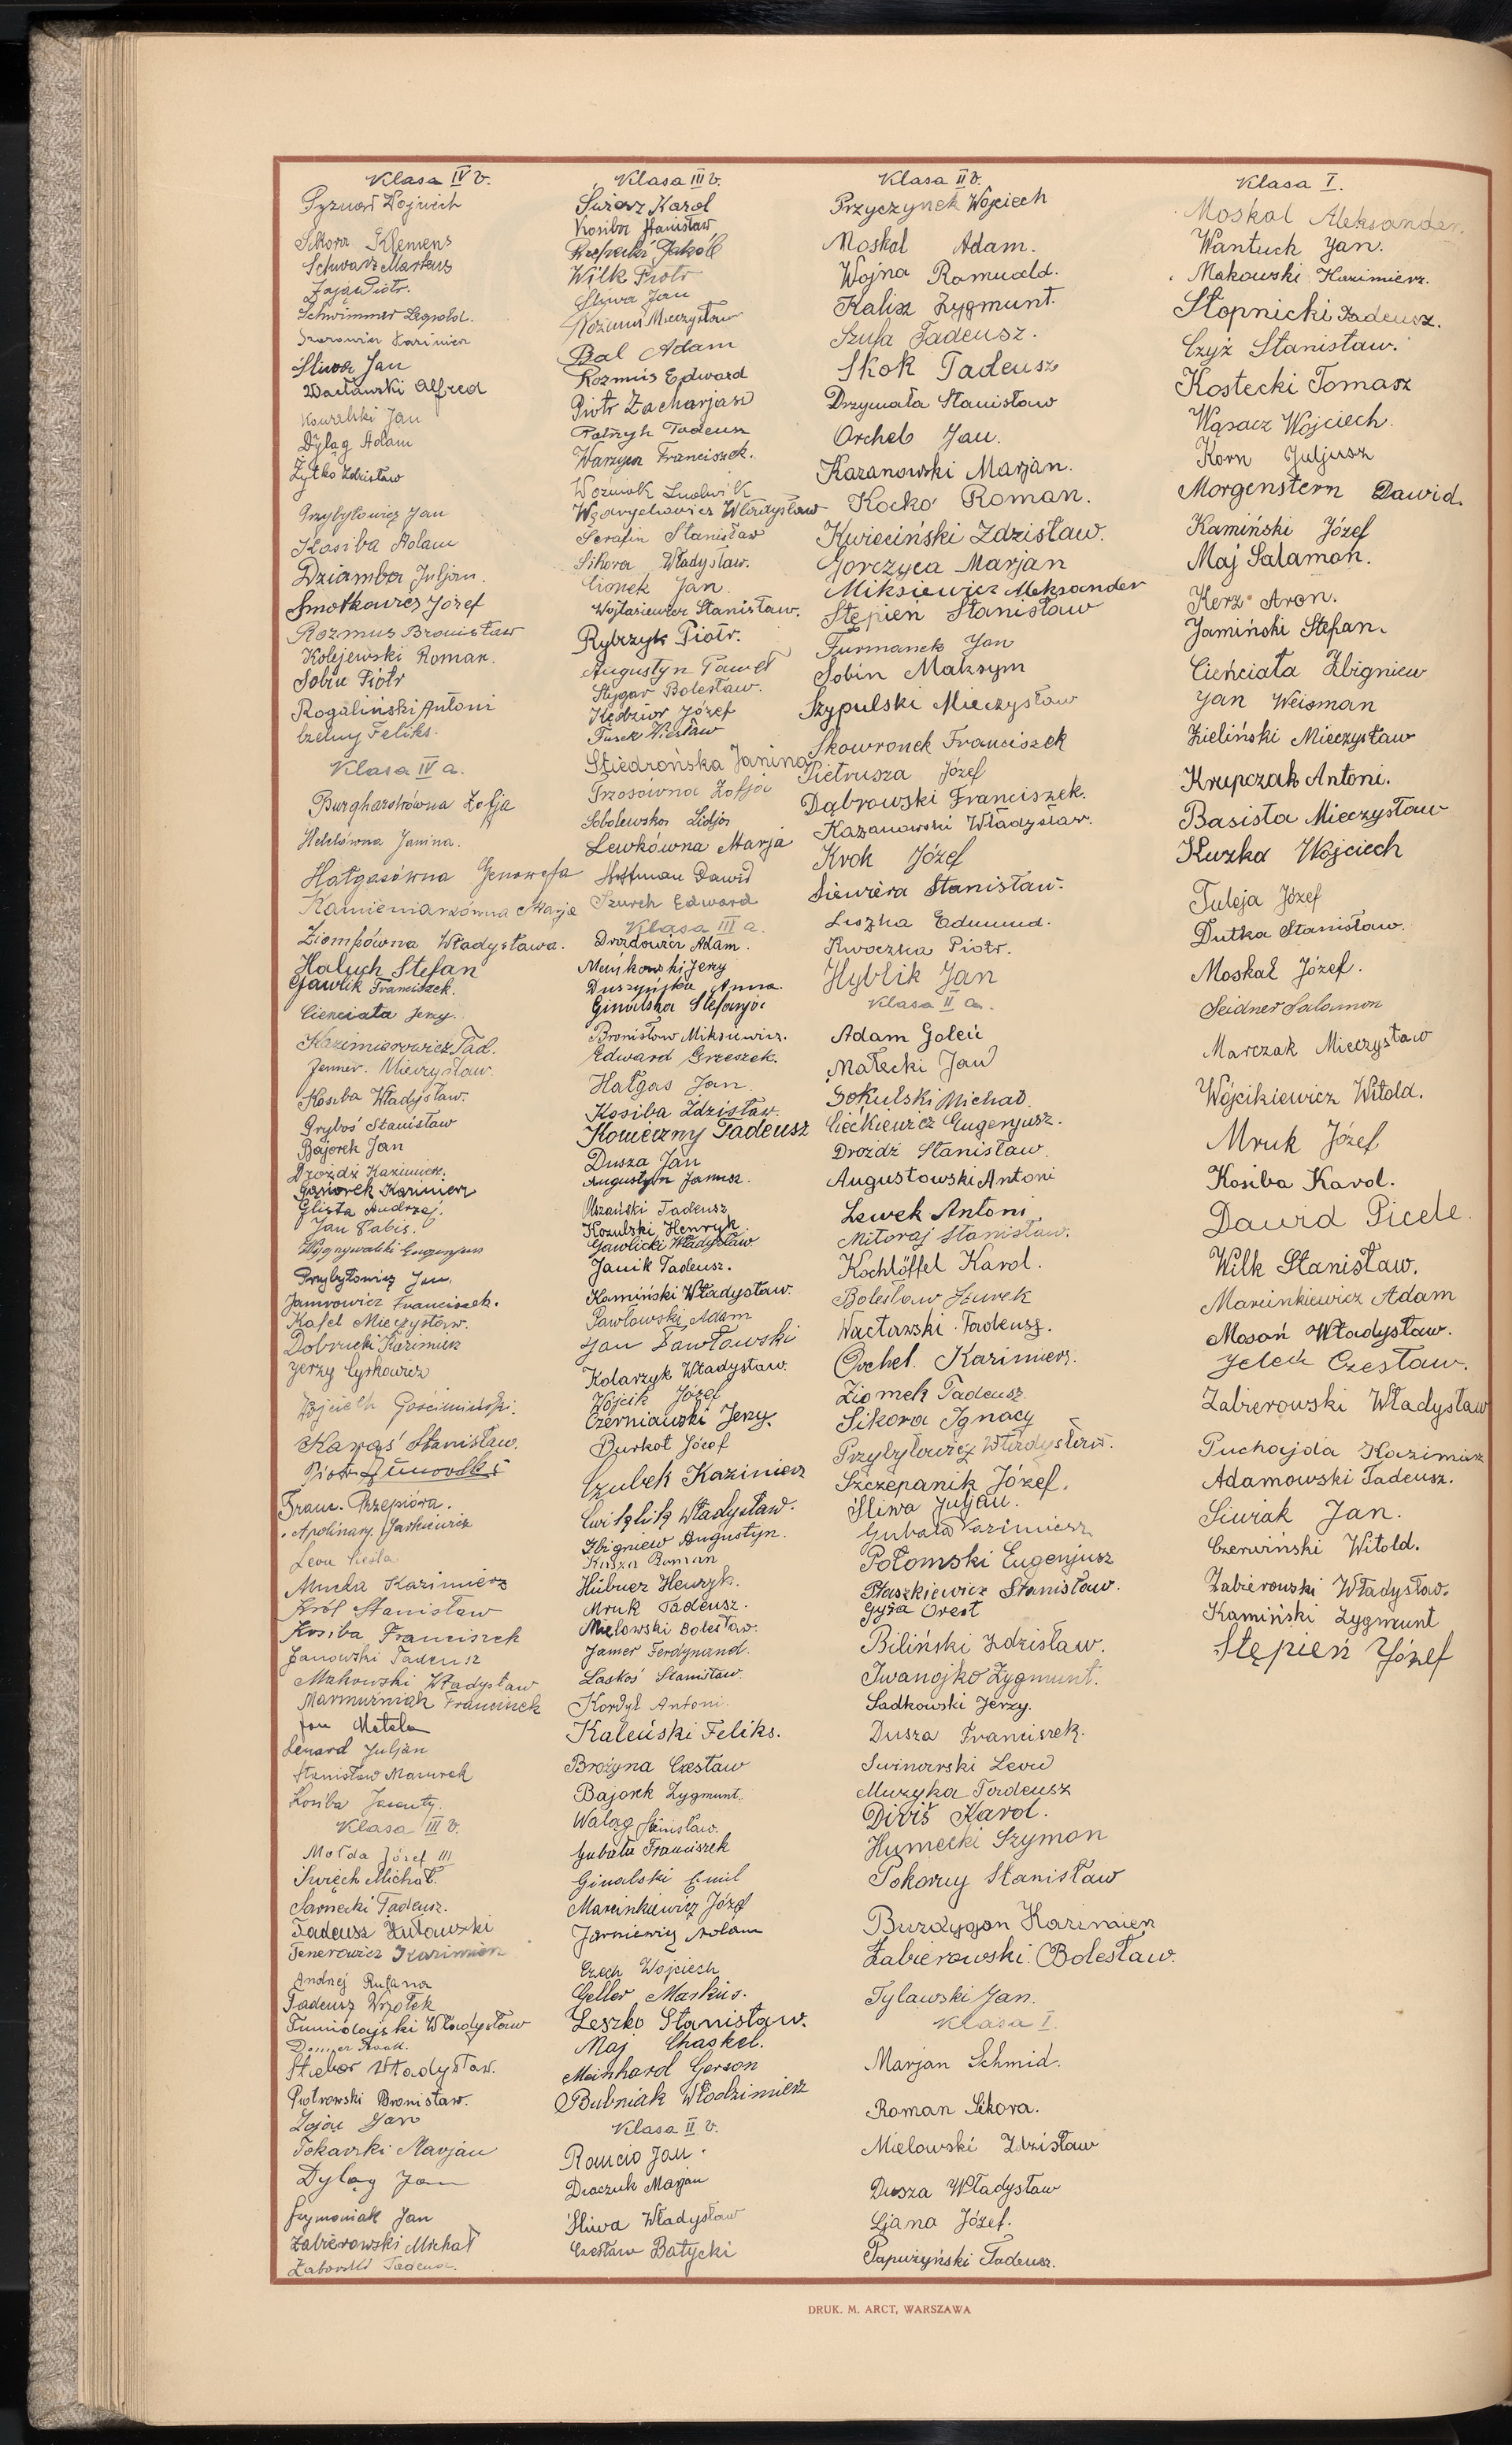 Klasa IV b.
Wojciech
Sikora Klemens
Schwarz Markus
Zając Piotr.
Schwimmer Leopold.
Kazimierz
Śliwa Jan
Wacławski Alfred
Kowalski Jan
Dyląg Adam
Żytko Zdzisław
Przybyłowicz Jan
Kosiba Adam
Dziamba Juljan.
Smotkowicz Józef
Rozmus Bronisław
Kolejewski Roman.
Sobin Piotr
Rogaliński Antoni
Czelny Feliks.
Klasa IV a.
Burghardtówna Zofja
Janina.
Hałgasówna Genowefa
Kamieniarzówna Marja
Ziomkówna Władysława.
Haluch Stefan
Gawlik Franciszek.
Cienciata Jerzy.
Kazimierowicz Tad.
Jenner. Mieczysław.
Kosiba Władysław.
Gryboś Stanisław
Bajorek Jan
Drożdż Kazimierz.
Gąsiorek Kazimierz
Glista Andrzej.
Jan Pabis.
Eugenjusz
Przybyłowicz Jan.
Jamrowicz Franciszek.
Kafel Mieczysław.
Dobrucki Kazimierz
Jerzy Cyrkowicz
Wojciech Gościmiński.
Karaś Stanisław.
Piotr
Franc. Przepióra.
Apolinary Jaśkiewicz
Leon Cieśla
Mucha Kazimierz
Król Stanisław
Kosiba Franciszek
Janowski Tadeusz
Makowski Władysław
Marmuźniak Franciszek
Jan Matela
Lenard Juljan
Stanisław Mazurek
Kosiba Jacenty.
Klasa III b.
Mołda Józef III
Święch Michał.
Sarnecki Tadeusz.
Tadeusz Żuławski
Tenerowicz Kazimierz
Andrzej Rufana
Tadeusz Wrzołek
Tumidajski Władysław
Stiebor Władysław.
Piotrowski Bronisław.
Zając Jan
Tokarski Marjan
Dyląg Jan
Szymoniak Jan
Zabierowski Michał
Żaborski Tadeusz.
Klasa III b.
Karol
Kosiba Stanisław
Jakób
Wilk Piotr
Śliwa Jan
Mieczysław
Bal Adam
Rozmus Edward
Piotr Zacharjasz
Tadeusz
Warzyca Franciszek.
Woźniak Ludwik
Wędrychowicz Władysław
Serafin Stanisław
Sikora Władysław.
Cionek Jan.
Wojtasiewicz Stanisław.
Rybczyk Piotr.
Augustyn Paweł
Stygar Bolesław.
Kędzior Józef
Tusek Wiesław
Stiedrońska Janina
Trzosówna Zofja
Sobolewska Lidja
Lewkówna Marja
Hoffman Dawid
Szurek Edward
Klasa III a.
Drozdowicz Adam.
Meńkowski Jerzy
Duszyńska Anna.
Ginalska Stefanja
Bronisław Miksiewicz.
Edward Grzeszek.
Hałgas Jan.
Kosiba Zdzisław.
Konieczny Tadeusz
Dusza Jan
Augustyn Janusz.
Mszański Tadeusz
Kozulski Henryk.
Gawlicki Władysław.
Janik Tadeusz.
Kamiński Władysław.
Pawłowski Adam
Jan Pawłowski
Kolarzyk Władysław.
Wójcik Józef
Czerniawski Jerzy.
Burkot Józef
Czubek Kazimierz
Ćwiąkalik Władysław.
Zbigniew Augustyn.
Roman
Hübner Henryk.
Mruk Tadeusz.
Mielowski Bolesław.
Jamer Ferdynand.
Laskoś Stanisław.
Kordyl Antoni.
Kaleński Feliks.
Brożyna Czesław
Bajorek Zygmunt.
Waląg Stanisław.
Gubała Franciszek
Ginalski Emil
Marcinkiewicz Józef
Jarniewicz Adam
Czech Wojciech
Geller Markus.
Leszko Stanisław.
Maj Chaskel.
Meinhard Gerson
Bubniak Włodzimierz
Klasa II b.
Rancio Jan.
Draczuk Marjan
Śliwa Władysław
Czesław Batycki
Klasa II b.
Przyczynek Wojciech
Moskal Adam.
Wojna Romuald.
Kalisz Zygmunt.
Szufa Tadeusz.
Skok Tadeusz
Drzymała Stanisław
Orchel Jan.
Kazanowski Marjan.
Kocko Roman.
Kwieciński Zdzisław.
Gorczyca Marjan
Miksiewicz Aleksander
Stępień Stanisław
Furmanek Jan
Sobin Maksym
Szypulski Mieczysław
Skowronek Franciszek
Pietrusza Józef
Dąbrowski Franciszek.
Kazanowski Władysław.
Krok Józef
Siewiera Stanisław.
Liszka Edmund.
Kwoczka Piotr.
Hyblik Jan
Klasa II a.
Adam Goleń
Małecki Jan
Sokulski Michał.
Ciećkiewicz Eugenjusz.
Drożdż Stanisław.
Augustowski Antoni
Lewek Antoni.
Mitoraj Stanisław.
Kochlöffel Karol.
Bolesław Szurek
Wacławski Tadeusz.
Orchel. Kazimierz.
Ziomek Tadeusz.
Sikora Ignacy
Przybyłowicz Władysław.
Szczepanik Józef.
Śliwa Juljan.
Gubała Kazimierz
Połomski Eugenjusz
Płaszkiewicz Stanisław.
Gyża Orest
Biliński Zdzisław.
Iwanojko Zygmunt.
Sadkowski Jerzy.
Dusza Franciszek.
Swinarski Leon
Muzyka Tadeusz
Diviš Karol.
Humecki Szymon
Pokorny Stanisław
Burdygon Kazimierz
Zabierowski Bolesław.
Tylawski Jan.
Klasa I.
Marjan Schmid.
Roman Sikora.
Mielowski Zdzisław
Dusza Władysław
Liana Józef.
Papużyński Tadeusz.
Klasa I.
Moskal Aleksander.
Wantuch Jan.
Makowski Kazimierz.
Słopnicki Tadeusz.
Czyż Stanisław.
Kostecki Tomasz
Wąsacz Wojciech.
Korn Juljusz
Morgenstern Dawid.
Kamiński Józef
Maj Salamon.
Kerz Aron.
Jamiński Stefan.
Cieńciała Zbigniew
Jan Weisman
Zieliński Mieczysław
Krupczak Antoni.
Basista Mieczysław
Kuzka Wojciech
Tuleja Józef
Dutka Stanisław.
Moskal Józef.
Seidner Salamon
Marczak Mieczysław
Wójcikiewicz Witold.
Mruk Józef
Kosiba Karol.
Dawid Picele.
Wilk Stanisław.
Marcinkiewicz Adam
Mosoń Władysław.
Jelech Czesław.
Zabierowski Władysław
Puchajda Kazimierz
Adamowski Tadeusz.
Siwiak Jan.
Czerwiński Witold.
Zabierowski Władysław.
Kamiński Zygmunt
Stępień Józef
DRUK. M. ARCT, WARSZAWA